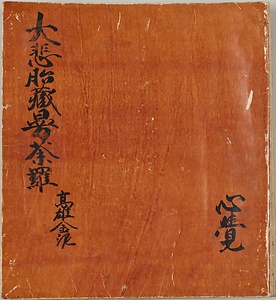 大悲胎藏曼荼羅
高雄金泥
心覺